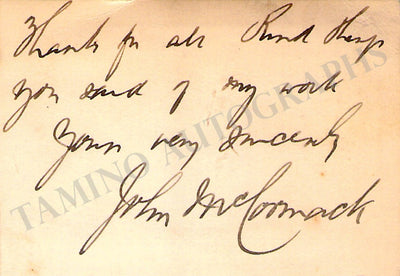 Thanks for all Kind things
you said of my work
Yours very sincerely
John McCormack
TAMINO AUTOGRAPHS